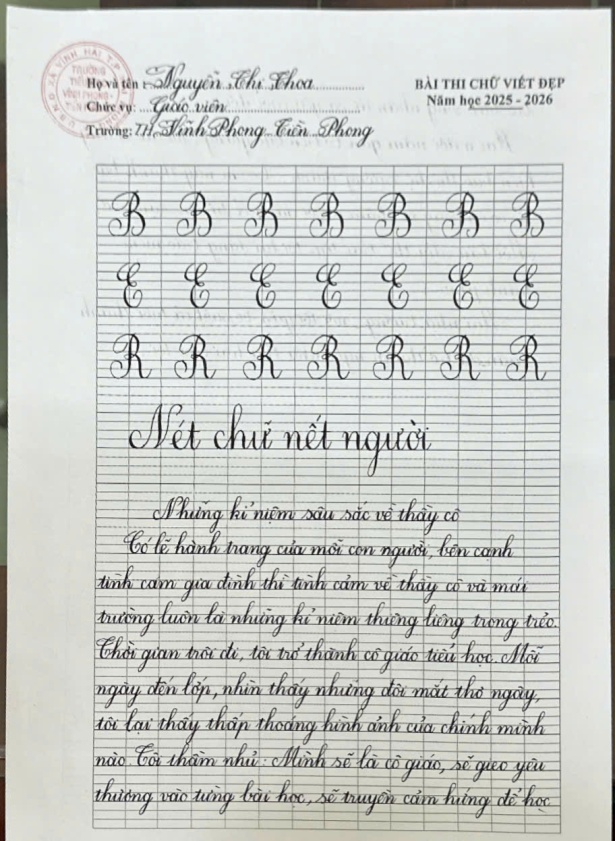 Họ và tên: Nguyễn Thị Thoa
Chức vụ: Giáo viên
Trường: TH Vĩnh Phong - Tiền Phong
BÀI THI CHỮ VIẾT ĐẸP
Năm học 2025 - 2026
B B B B B B B
E E E E E E E
R R R R R R R
Nét chữ nết người
Những kỉ niệm sâu sắc về thầy cô
Có lẽ hành trang của mỗi con người, bên cạnh
tình cảm gia đình thì tình cảm về thầy cô và mái
trường luôn là những kỉ niệm thiêng liêng trong trẻo.
Thời gian trôi đi, tôi trở thành cô giáo tiểu học. Mỗi
ngày đến lớp, nhìn thấy những đôi mắt thơ ngây,
tôi lại thấy thấp thoáng hình ảnh của chính mình
nào. Tôi thầm nhủ: Mình sẽ là cô giáo, sẽ gieo yêu
thương vào từng bài học, sẽ truyền cảm hứng để học